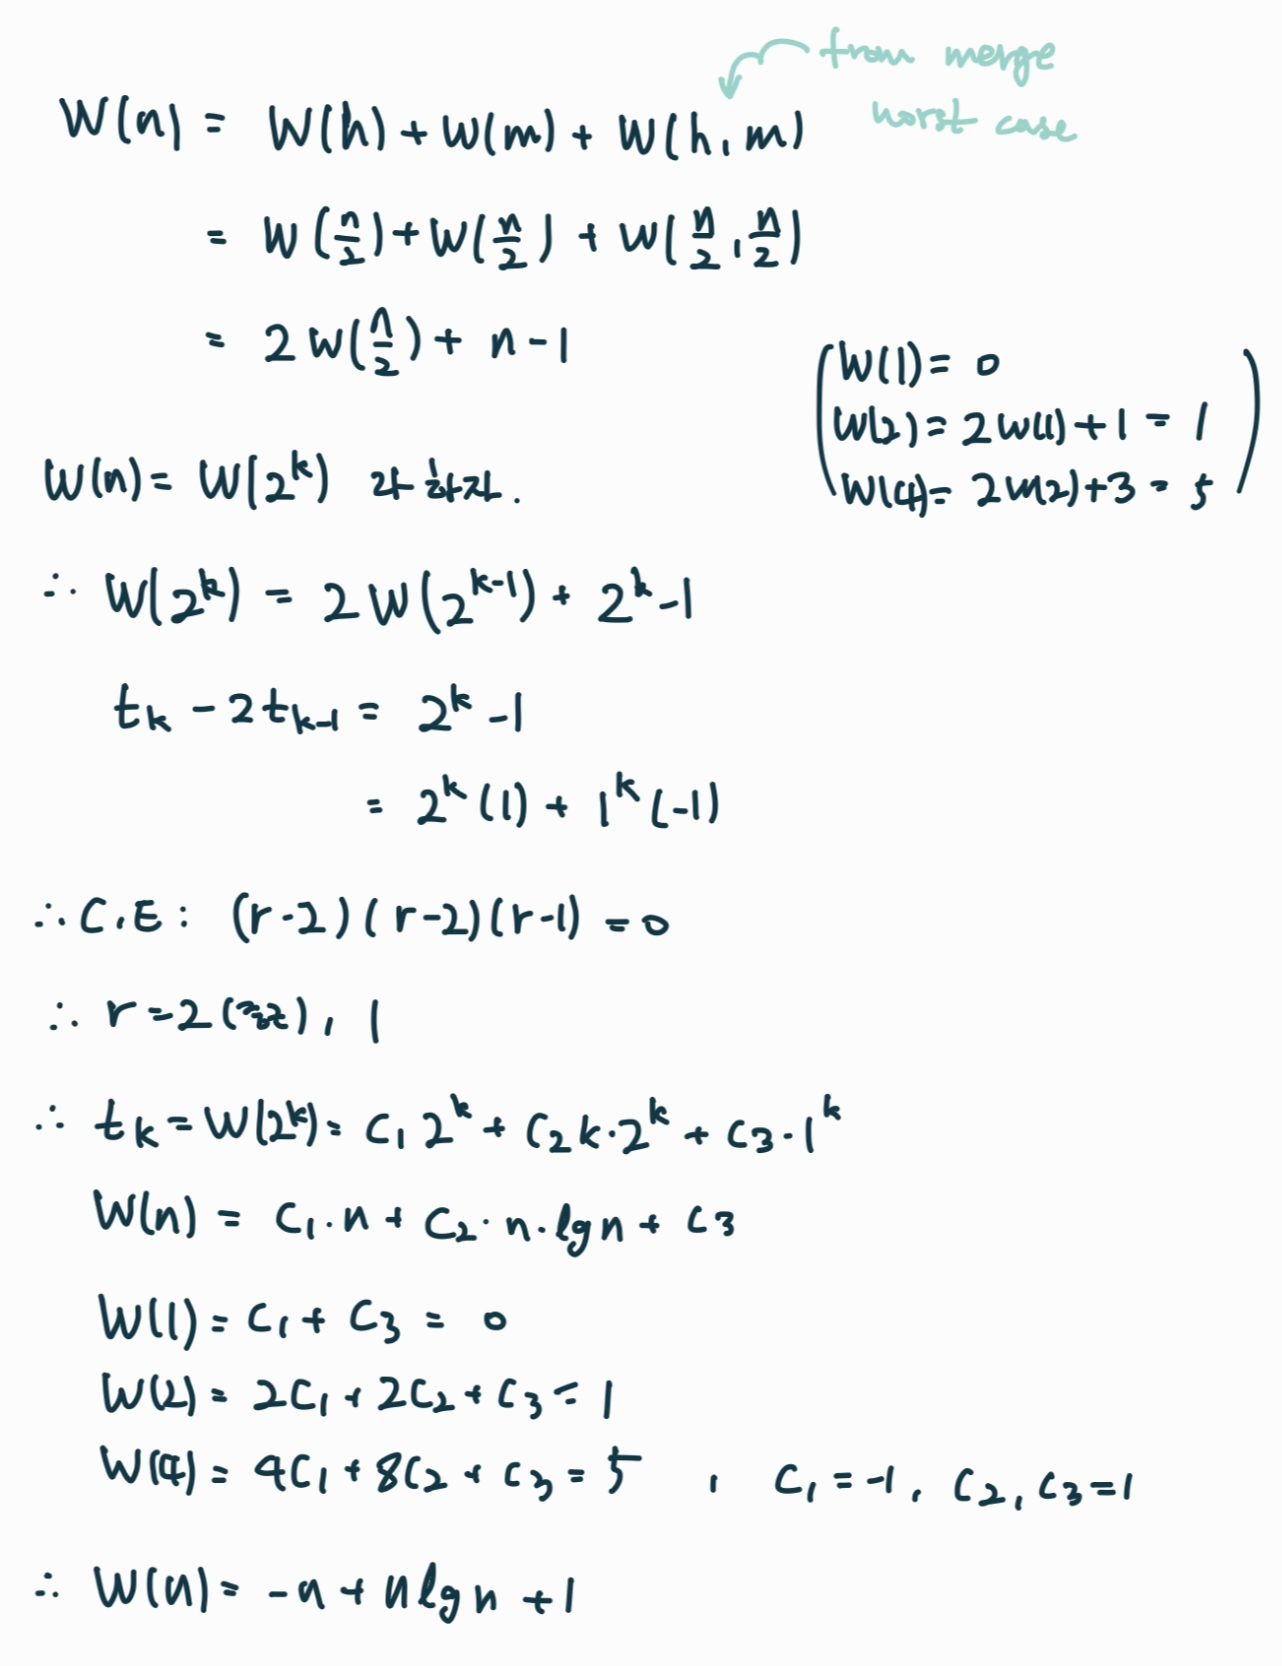 from merge
worst case
W(n) = W(h) + W(m) + W(h, m)
= W(n/2) + W(n/2) + W(n/2, n/2)
= 2W(n/2) + n-1
(W(1) = 0
W(2) = 2W(1) + 1 = 1
W(4) = 2W(2) + 3 = 5)
W(n) = W(2^k) 라 하자.
∴ W(2^k) = 2W(2^{k-1}) + 2^k - 1
t_k - 2t_{k-1} = 2^k - 1
= 2^k (1) + 1^k (-1)
∴ C.E : (r-2)(r-2)(r-1) = 0
∴ r = 2 (중근), 1
∴ t_k = W(2^k) = c_1 2^k + c_2 k·2^k + c_3·1^k
W(n) = c_1·n + c_2·n·lg n + c_3
W(1) = c_1 + c_3 = 0
W(2) = 2c_1 + 2c_2 + c_3 = 1
W(4) = 4c_1 + 8c_2 + c_3 = 5 , c_1 = -1, c_2, c_3 = 1
∴ W(n) = -n + n lg n + 1